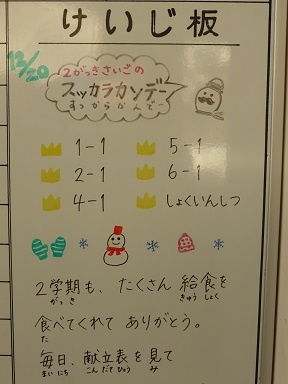 けいじ板
12/20
2がっきさいごの
スッカラカンデー
すっからかんでー
1-1 5-1
2-1 6-1
4-1 しょくいんしつ
2学期も、たくさん 給食を
がっき きゅうしょく
食べてくれて ありがとう。
た
毎日、献立表を見て
まいにち こんだてひょう み